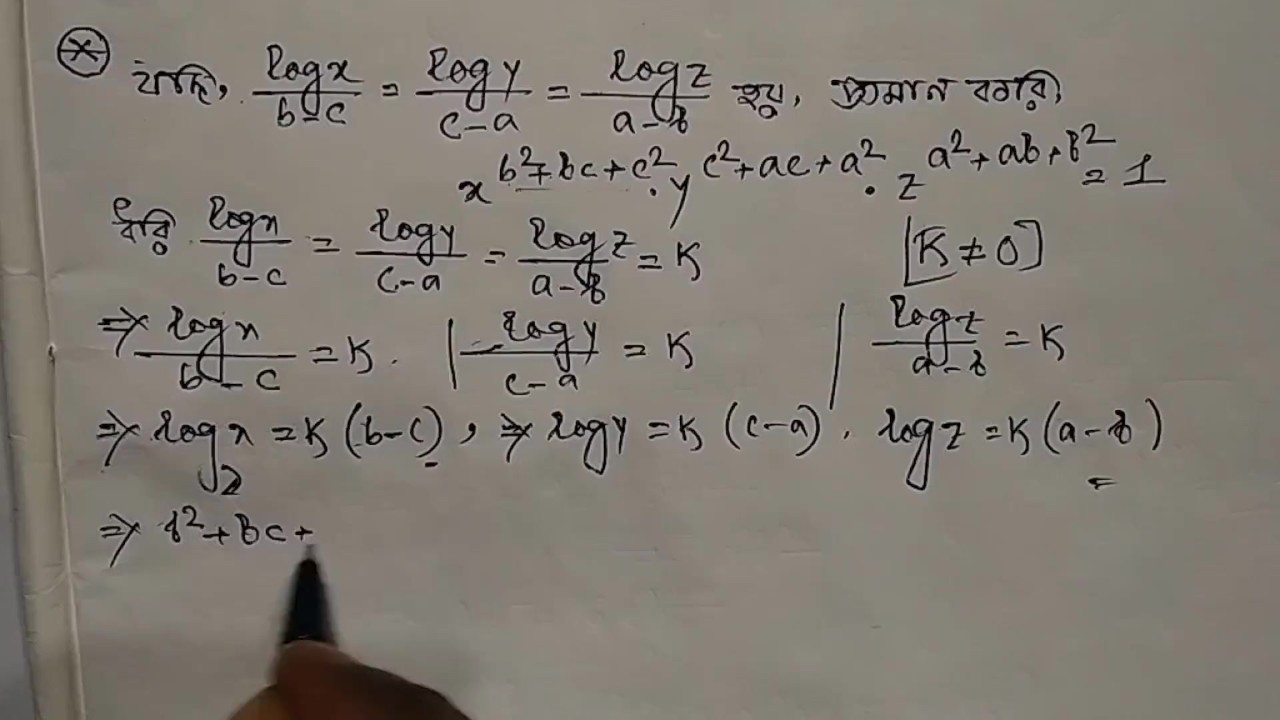 যদি, logx/b-c = logy/c-a = logz/a-b হয়, প্রমান করি,
x^b²+bc+c² . y^c²+ac+a² . z^a²+ab+b² = 1
ধরি logx/b-c = logy/c-a = logz/a-b = K [K ≠ 0]
⇒ logx/b-c = K. | logy/c-a = K | logz/a-b = K
⇒ logx = K(b-c), ⇒ logy = K(c-a). logz = K(a-b)
⇒ b²+bc+